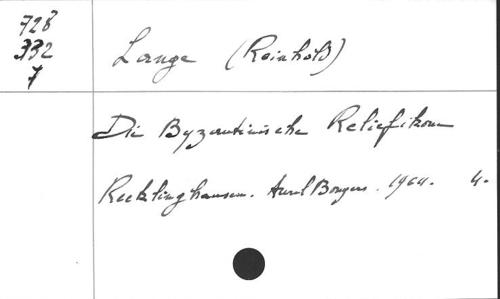 728
332
7
Lange (Reinhold)
Die Byzantinische Reliefikone
Recklinghausen. Aurel Bongers. 1964. 4.